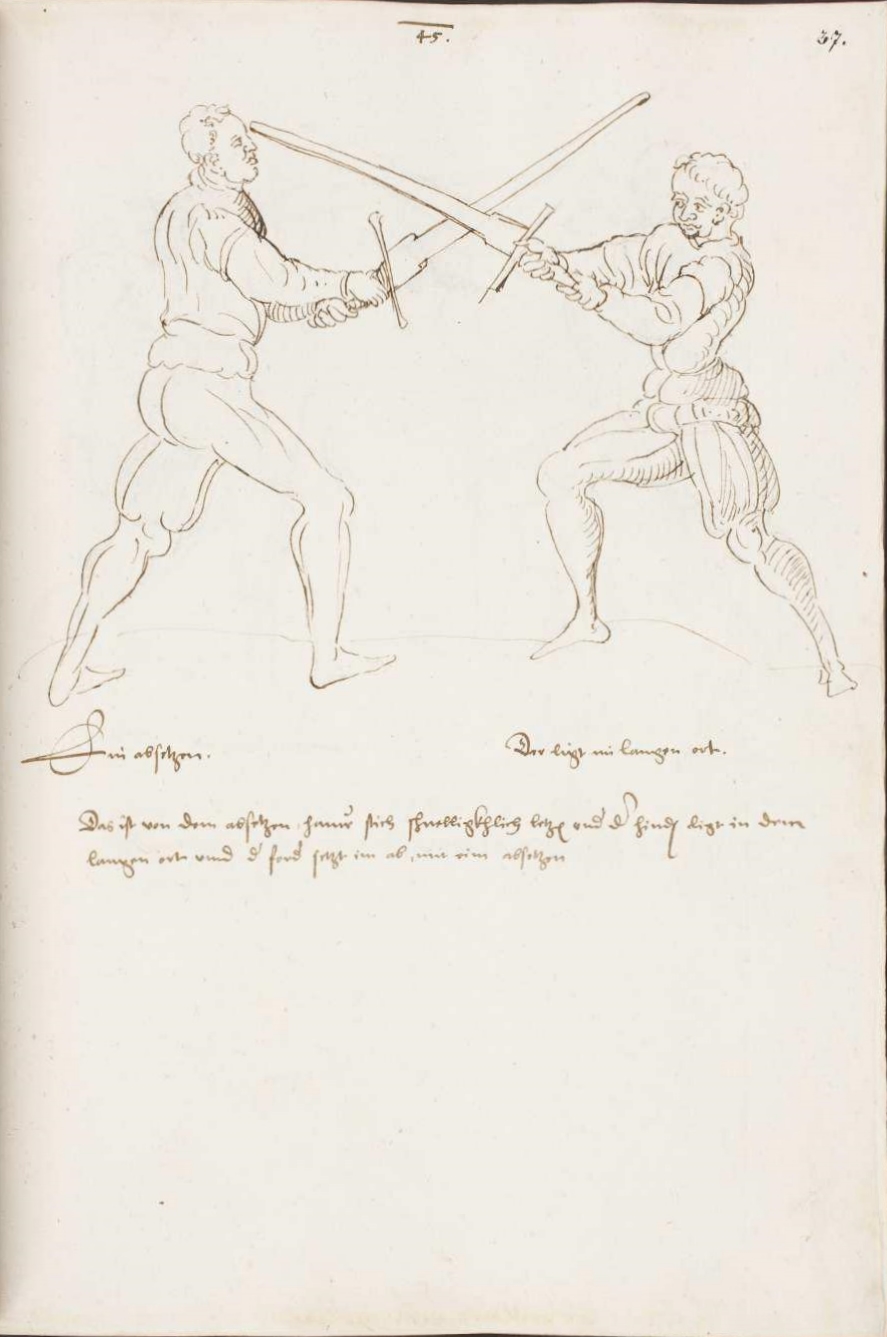 45.
37.
Ein absetzen.
Der ligt im langen ort.
Das ist von dem absetzen hauw stich schnelligkhlich letz und d hind ligt in dem
langen ort vnnd d ford setzt im ab, mit eim absetzen